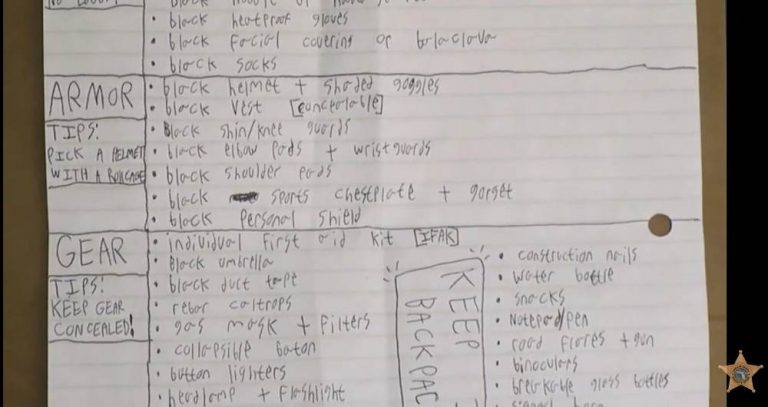 black heatproof gloves
black facial covering or balaclava
black socks
ARMOR
black helmet + shaded goggles
black vest [concealable]
TIPS:
PICK A HELMET
WITH A
black shin/knee guards
black elbow pads + wristguards
black shoulder pads
black sports chestplate + gorget
black personal shield
GEAR
individual first aid kit [IFAK]
black umbrella
TIPS:
KEEP GEAR
CONCEALED!
black duct tape
rebar caltrops
gas mask + filters
collapsible baton
button lighters
headlamp + flashlight
KEEP
BACKPAC
construction nails
water bottle
snacks
Notepad/pen
road flares + gun
binoculars
breakable glass bottles